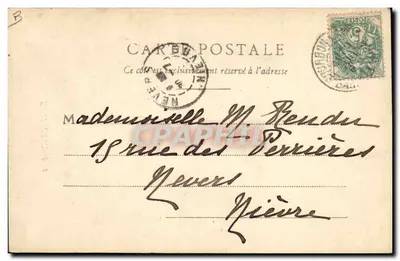 B
CARTE POSTALE
Ce côté est exclusivement réservé à l'adresse
NEVERS
Mademoiselle M. Rendu
15 rue des Perrières
Nevers
Nièvre